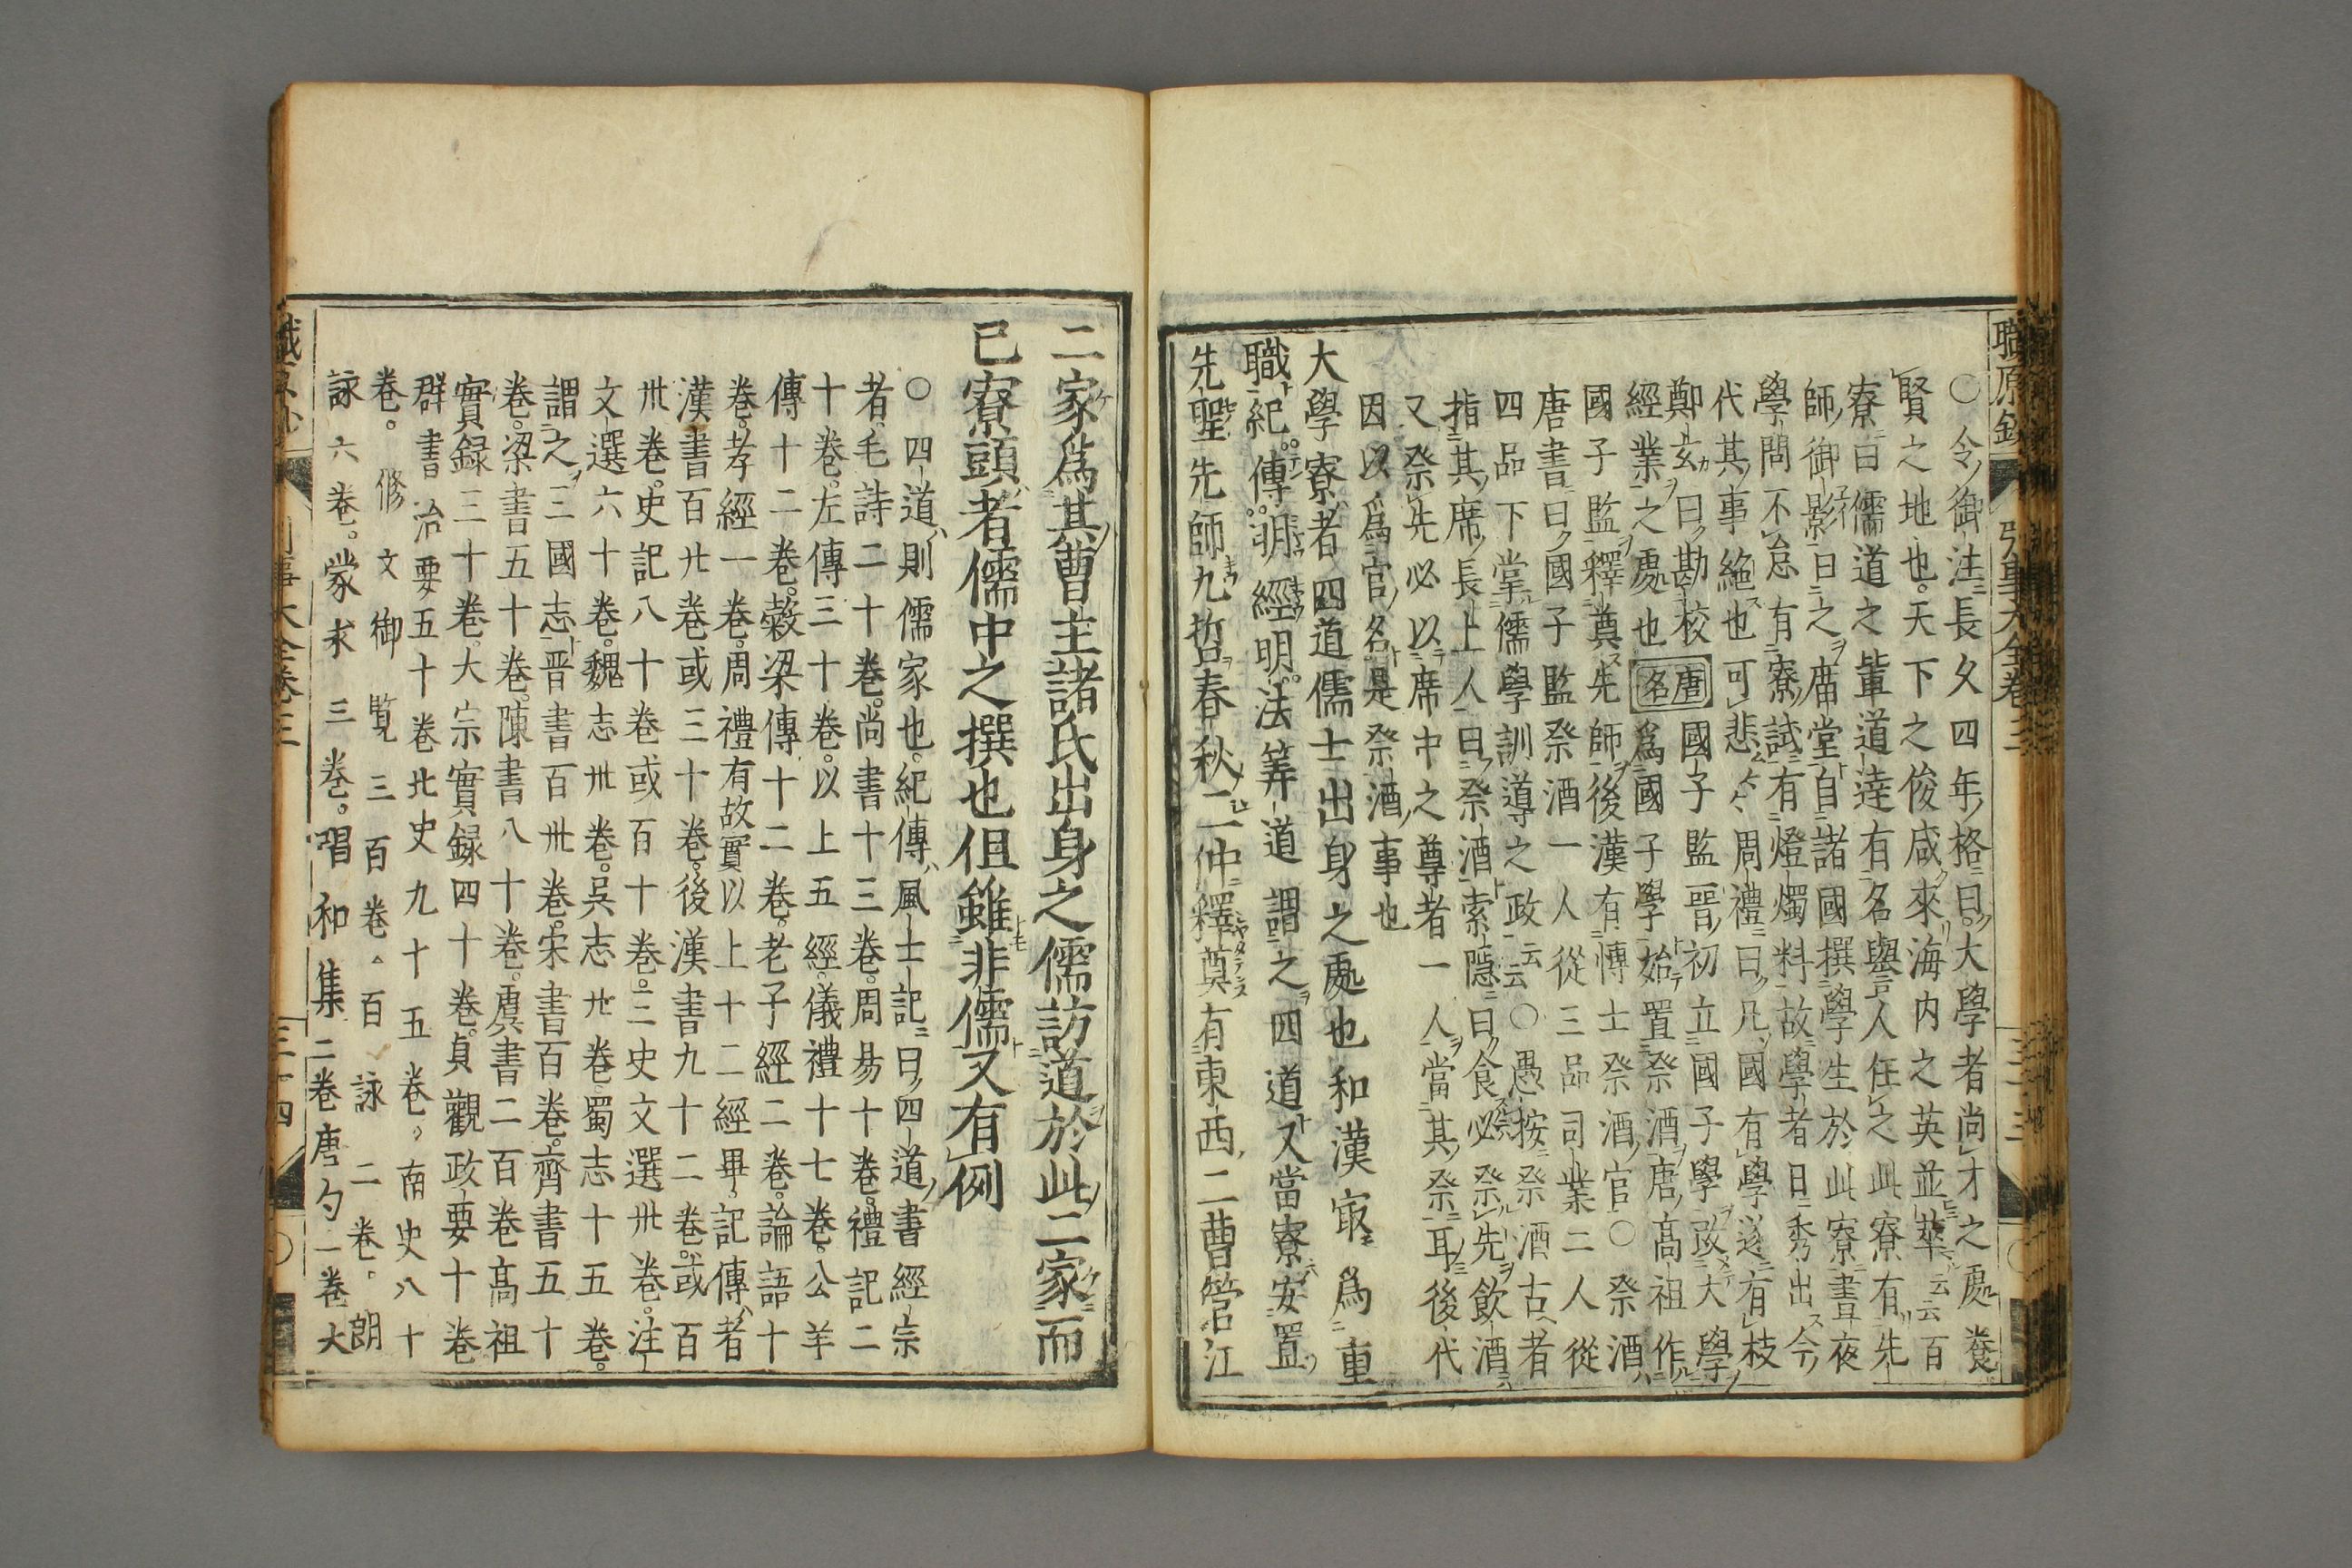 ○令御注ニ長久四年格ニ曰ク大學者尚才之處養
賢之地也。天下之俊咸來海内之英並萃云云百
寮ニ曰儒道之輩道達有名譽人任之此寮有先
師ノ御影曰之ヲ廟堂ト自諸國撰學生於此寮晝夜
學問不怠有寮試有燈燭料故學者日ニ秀出ス今
代其事絶也可悲ム〻周禮曰凡國有學遂有枝
鄭玄曰勘校唐名國子監晋初立國子學改大學
經業之處也 爲國子學始置祭酒唐髙祖作
國子監釋奠先師後漢有博士祭酒官○祭酒
唐書曰ク國子監祭酒一人從三品司業二人從
四品下掌儒學訓導之政云云○愚按祭酒古者
指其席ノ長上人曰祭酒ト索隱曰食必祭先飲酒
又祭先必以席中之尊者一人當其祭耳後代
因以爲官名是祭酒ノ事也
大學寮者四道儒士出身之處也和漢㝡爲重
職紀傳明經明法筭道謂之四道又當寮安置
先聖先師九哲春秋二仲釋奠有東西二曹管江
二家爲其曹主諸氏出身之儒訪道於此二家而
已寮頭者儒中之撰也但雖非儒又有例
○四道ハ則儒家也。紀傳ハ風士記曰四道ノ書經宗
者毛詩二十卷。尚書十三卷。周易十卷。禮記二
十卷。左傳三十卷。以上五經。儀禮十七卷。公羊
傳十二卷。穀梁傳十二卷。老子經二卷。論語十
卷。孝經一卷。周禮有故實以上十二經畢。記傳ハ者
漢書百廿卷或三十卷。後漢書九十二卷。或百
卅卷。史記八十卷或百十卷。三史文選卅卷。注
文選六十卷。魏志卅卷。吳志廿卷蜀志十五卷。
謂之ヲ三國志ト晋書百卅卷。宋書百卷。齊書五十
卷。梁書五十卷。陳書八十卷。虞書二百卷髙祖
實録三十卷。大宗實録四十卷。貞觀政要十卷
群書治要五十卷北史九十五卷。南史八十
卷。修文御覧三百卷。百詠二卷。朗
詠六卷。蒙求三卷。唱和集二卷唐勺一卷大
職原鈔 引事大全卷三 三十三
職原鈔 引事大全卷三 三十四